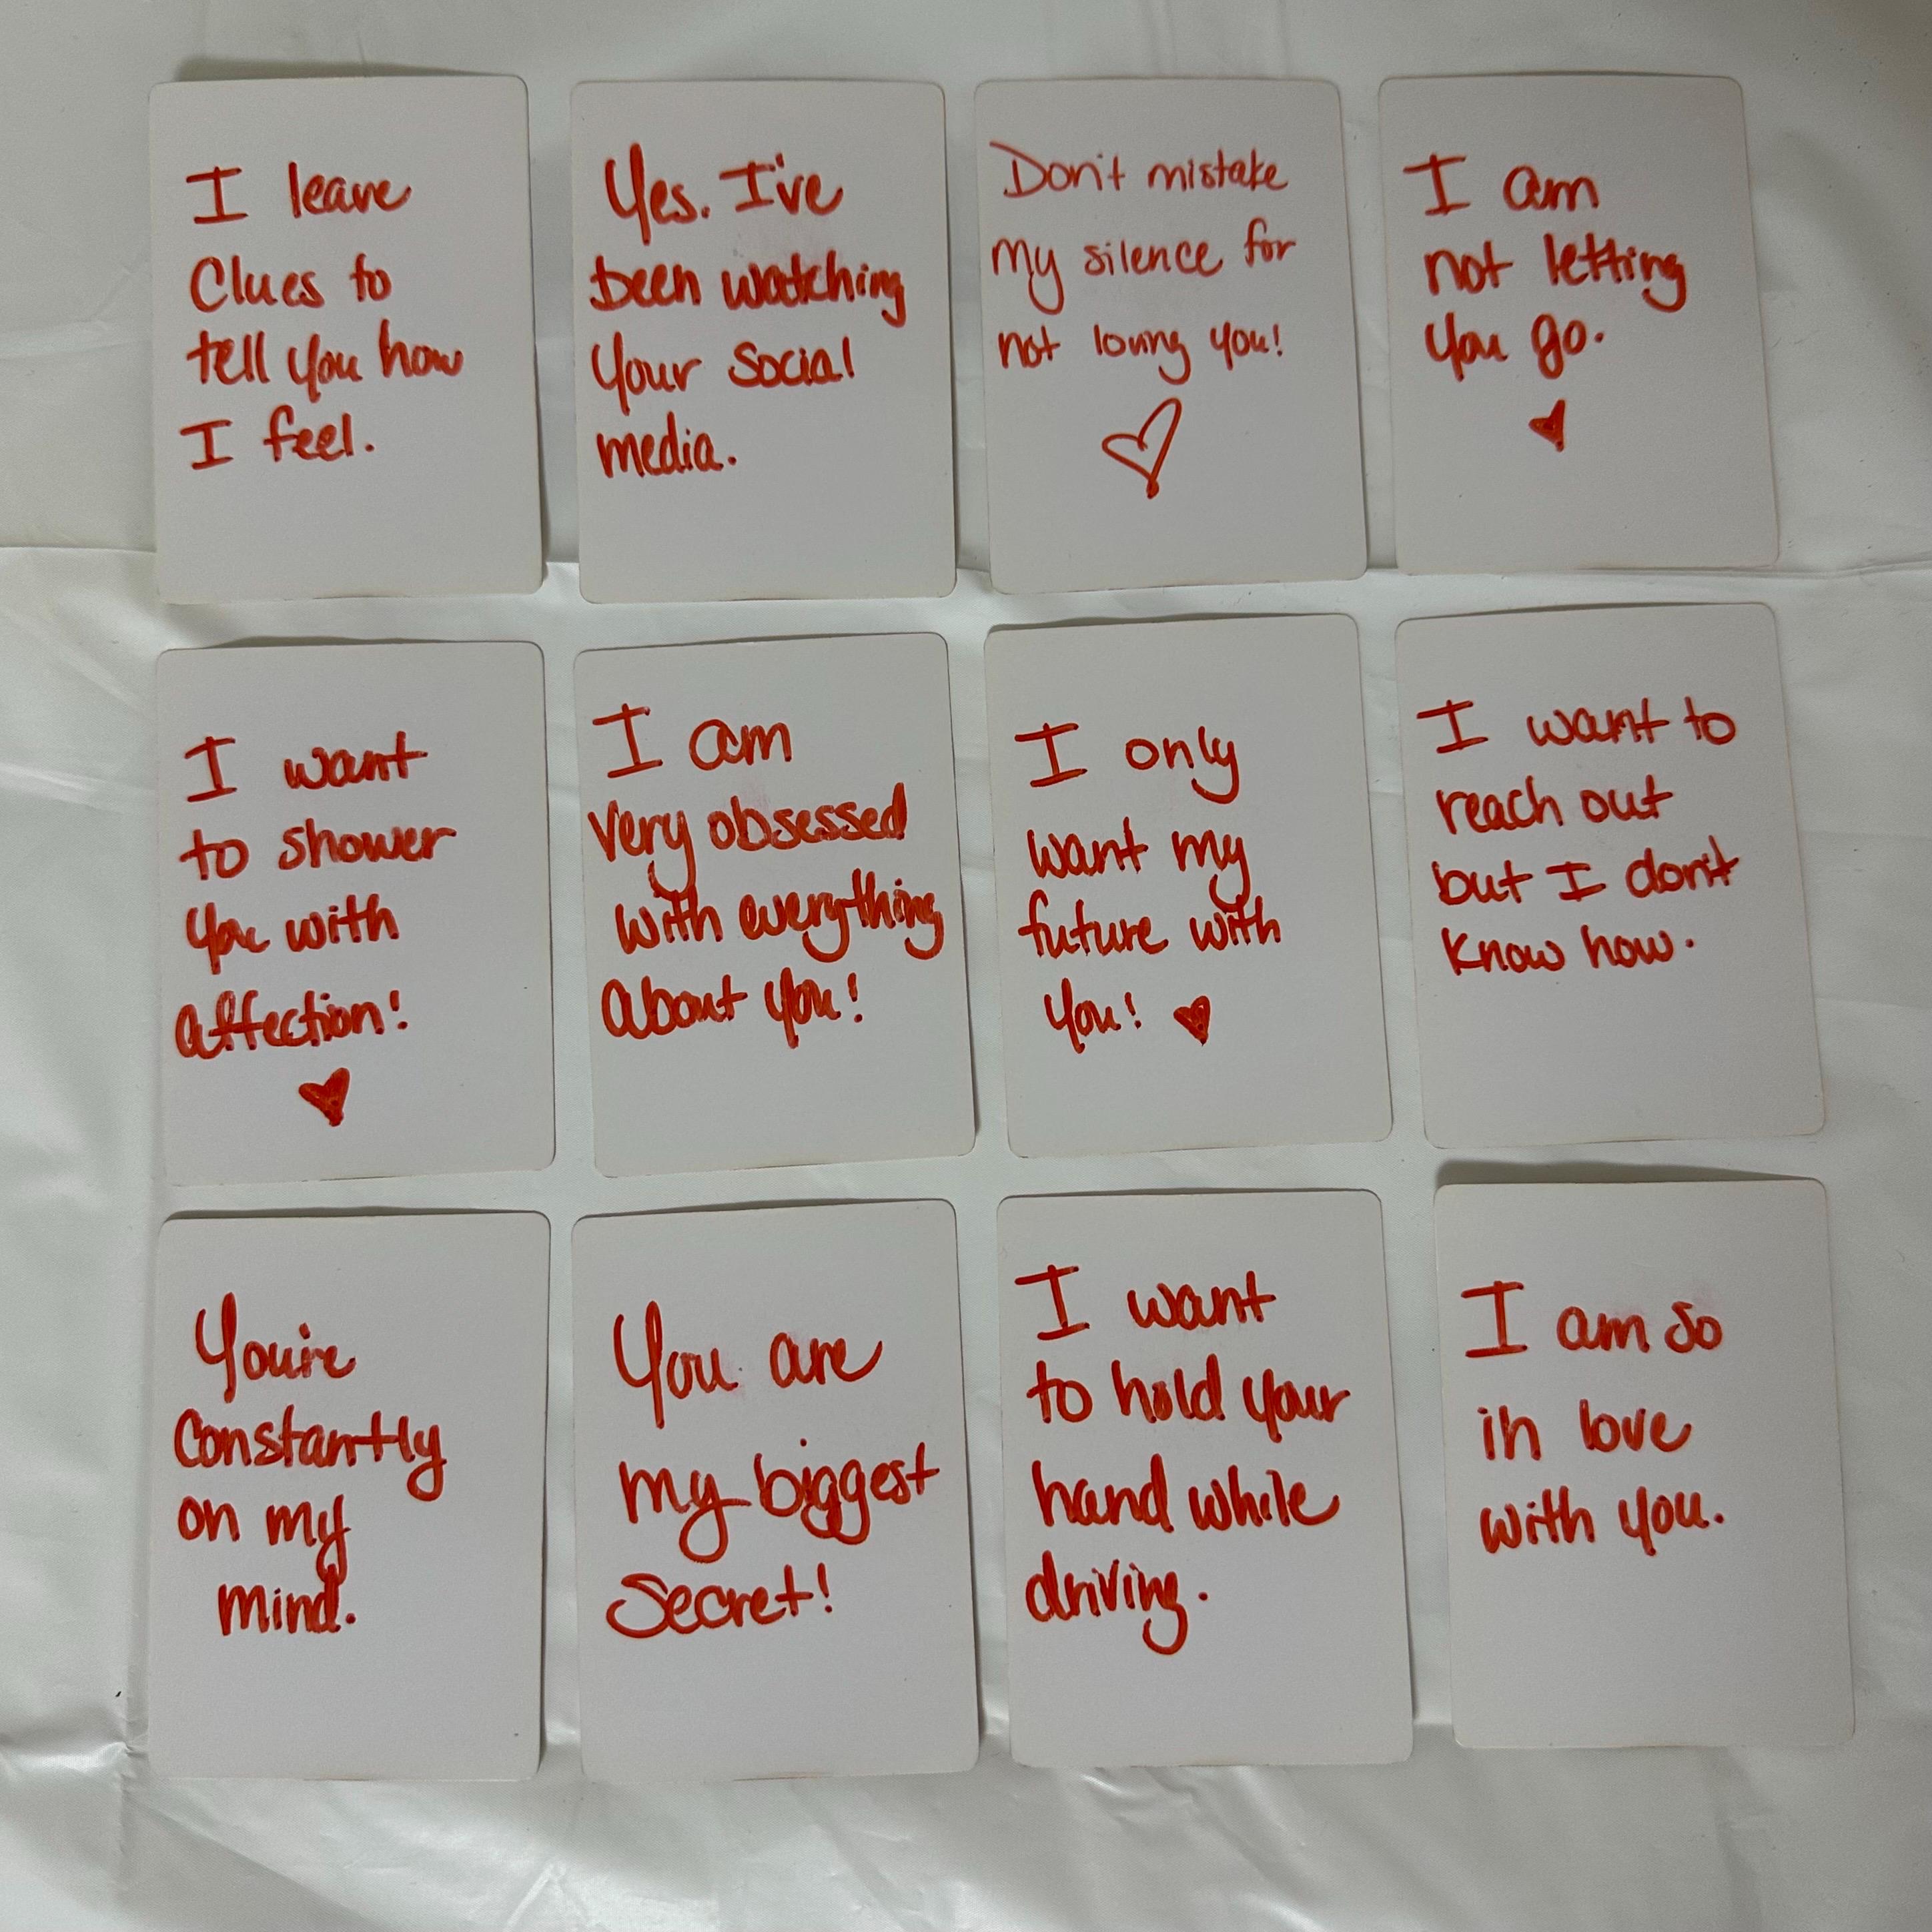 I leave
Clues to
tell you how
I feel.
Yes. I've
been watching
your social
media.
Don't mistake
my silence for
not loving you!
I am
not letting
you go.
I want
to shower
you with
affection!
I am
very obsessed
with everything
about you!
I only
want my
future with
you!
I want to
reach out
but I don't
know how.
You're
constantly
on my
mind.
You are
my biggest
secret!
I want
to hold your
hand while
driving.
I am so
in love
with you.